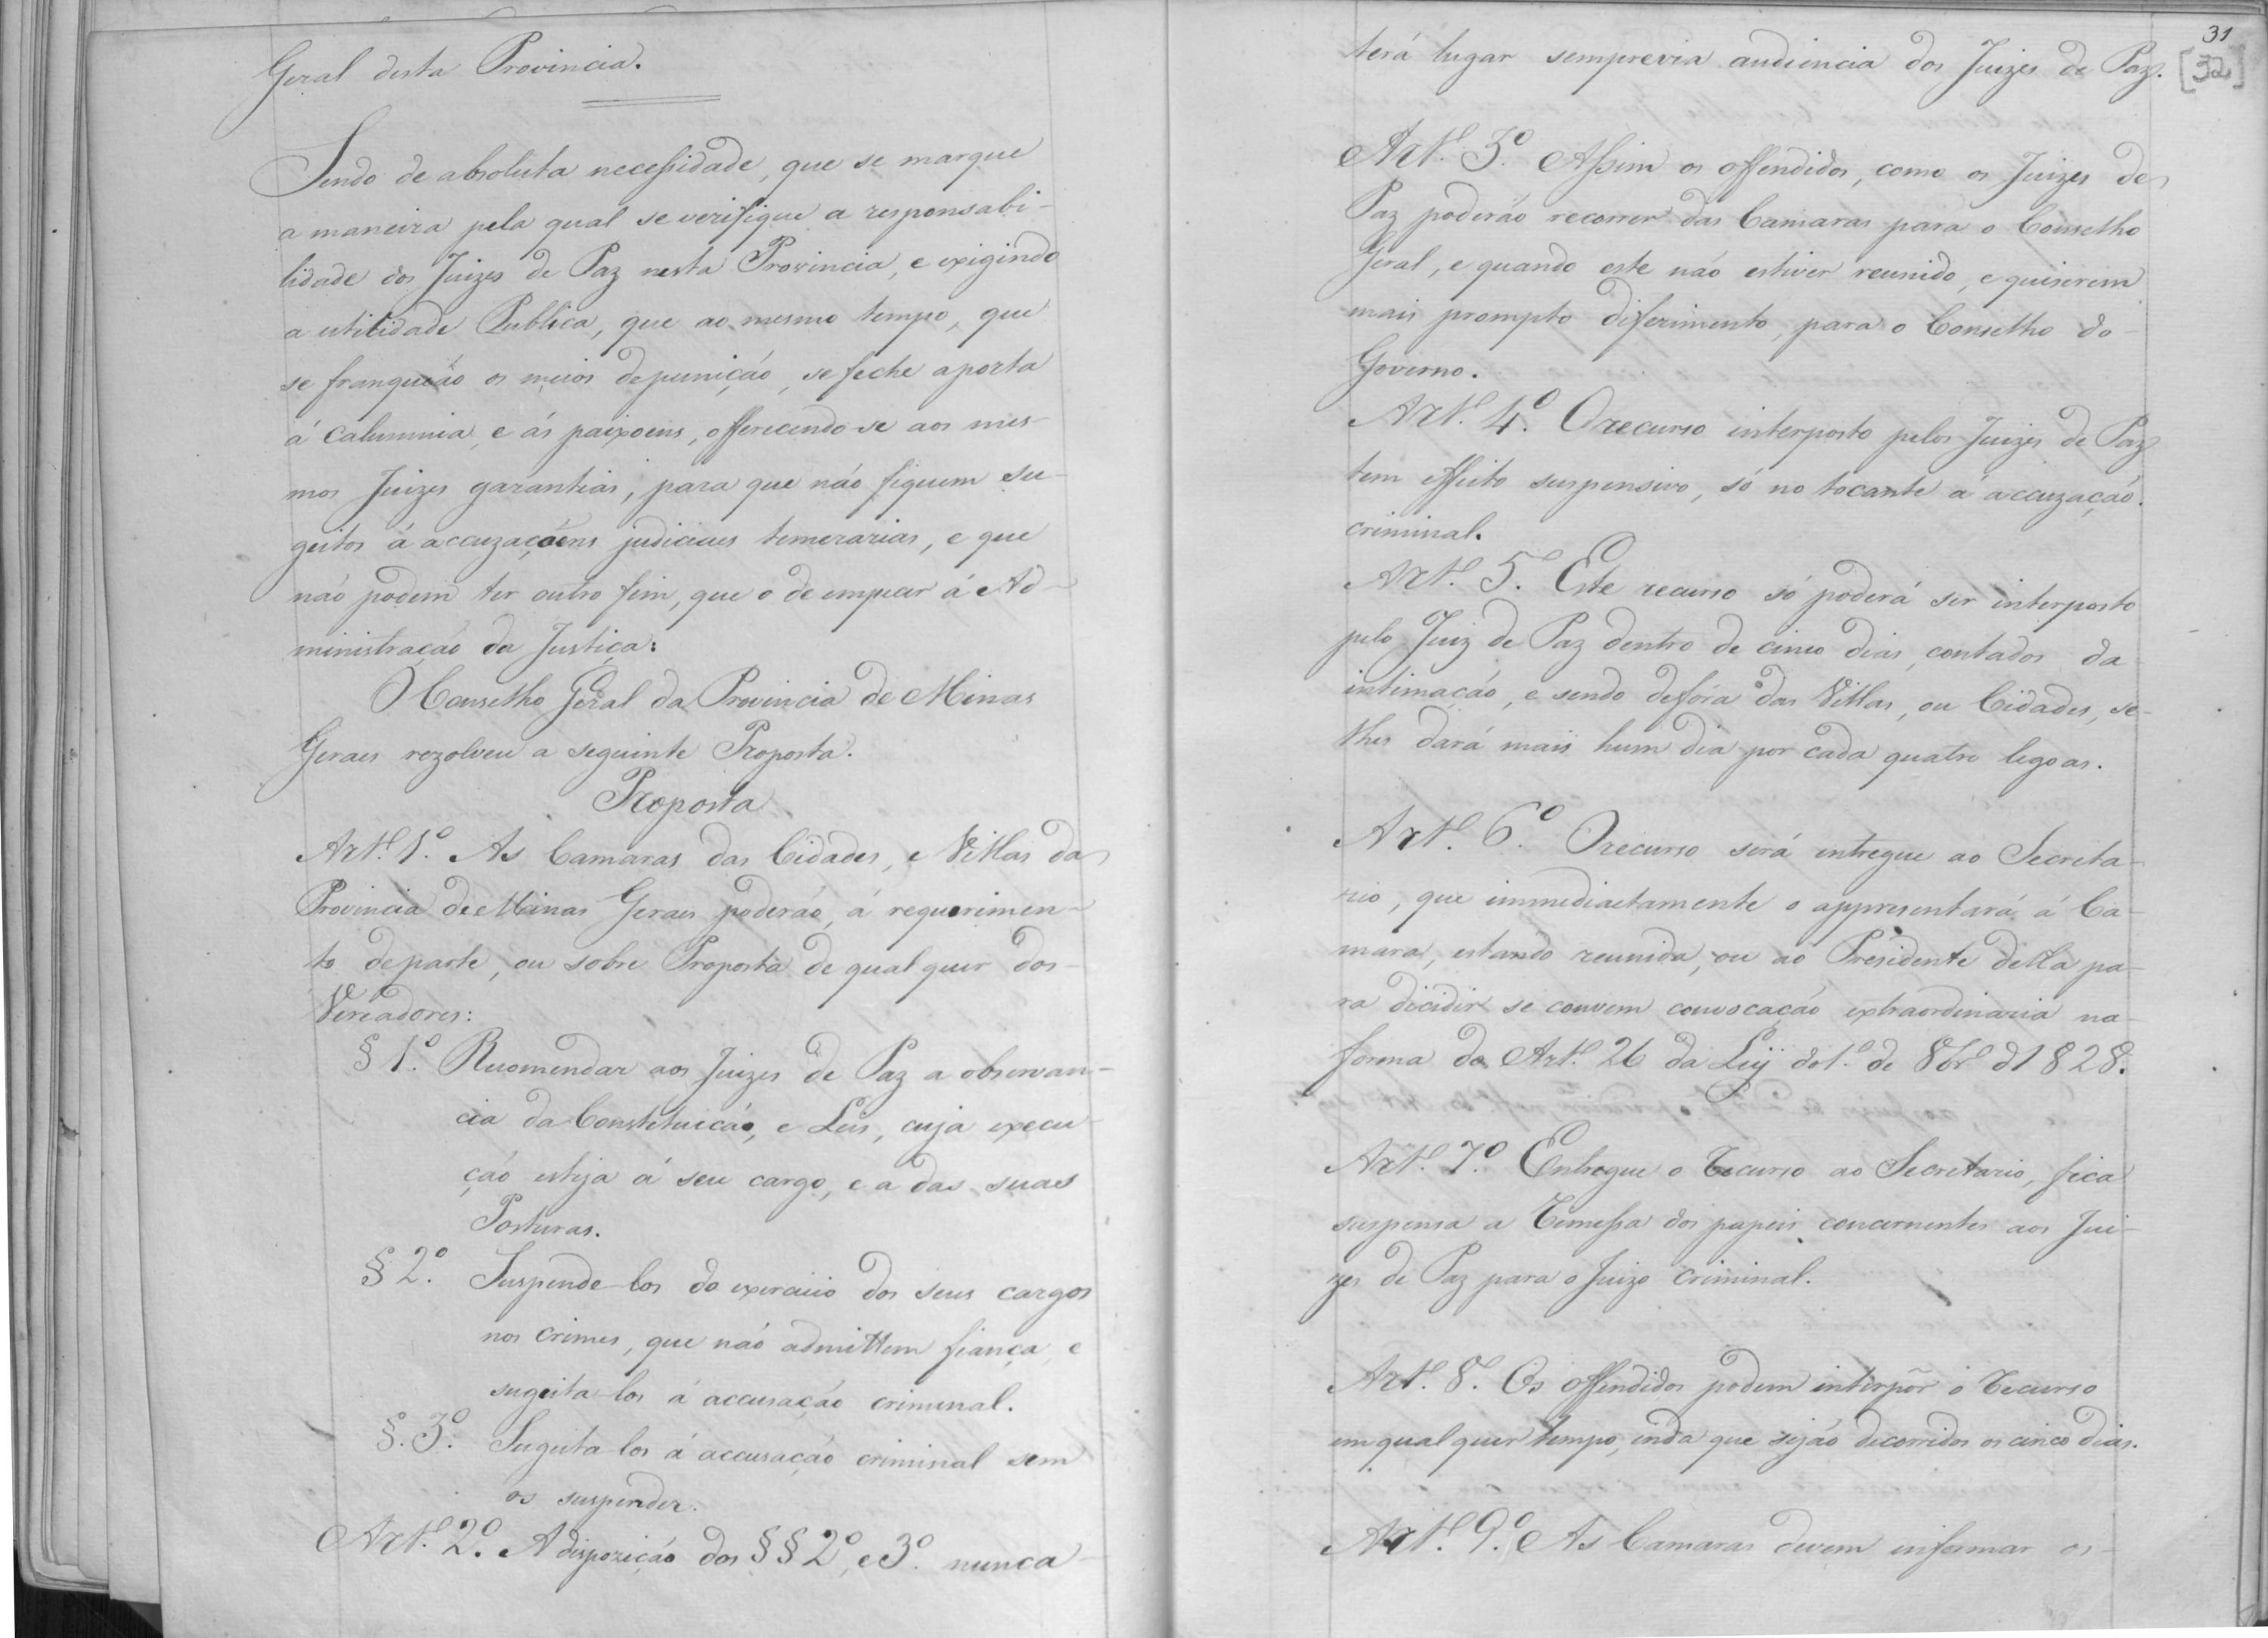 Geral desta Provincia.
Sendo de absoluta necessidade, que se marque
a maneira pela qual se verifique a responsabi-
lidade dos Juizes de Paz nesta Provincia, e exigindo
a utilidade Publica, que ao mesmo tempo, que
se franqueião os meios de punição, se feche a porta
á calumnia, e ás paixoens, offerecendo-se aos mes-
mos Juizes garantias, para que não fiquem su-
geitos á accuzaçoens judiciaes temerarias, e que
não podem ter outro fim, que o de empecer á Ad-
ministração da Justiça:
O Conselho Geral da Provincia de Minas
Geraes rezolveu a seguinte Proposta.
Proposta
Art.º 1.º As Camaras das Cidades, e Villas da
Provincia de Minas Geraes poderáo, á requerimen-
to de parte, ou sobre Proposta de qualquer dos
Vereadores:
§ 1.º Recomendar aos Juizes de Paz a observan-
cia da Constituição, e Leis, cuja execu-
ção esteja á seu cargo, e a das suas
Posturas.
§ 2.º Suspende-los do exercicio dos seus cargos
nos crimes, que não admittem fiança, e
sugeita-los á accusação criminal.
§. 3.º Sugeita-los á accusação criminal sem
os suspender.
Art.º 2.º A dispozição dos §§ 2.º, e 3.º nunca
31
[32]
terá lugar sem previa audiencia dos Juizes de Paz.
Art.º 3.º Assim os offendidos, como os Juizes de
Paz poderáo recorrer das Camaras para o Conselho
Geral, e quando este não estiver reunido, e quiserem
mais prompto diferimento, para o Conselho do
Governo.
Art.º 4.º O recurso interposto pelos Juizes de Paz
tem effeito suspensivo, só no tocante á accuzação
criminal.
Art.º 5.º Este recurso só poderá ser interposto
pelo Juiz de Paz dentro de cinco dias, contados da
intimação, e sendo de fóra das Villas, ou Cidades, se
lhes dará mais hum dia por cada quatro legoas.
Art.º 6.º O recurso será entregue ao Secreta-
rio, que immediactamente o appresentará á Ca-
mara, estando reunida, ou ao Presidente della pa-
ra dicidir se convem convocação extraordinaria na
forma do Art.º 26 da Ley do 1.º de 8br.º d 1828.
Art.º 7.º Entregue o Recurso ao Secretario, fica
suspensa a Remessa dos papeis concernentes aos Jui-
zes de Paz para o Juizo criminal.
Art.º 8.º Os offendidos podem interpôr o Recurso
em qualquer tempo, inda que sejão decorridos os cinco dias.
Art.º 9.º As Camaras devem informar os